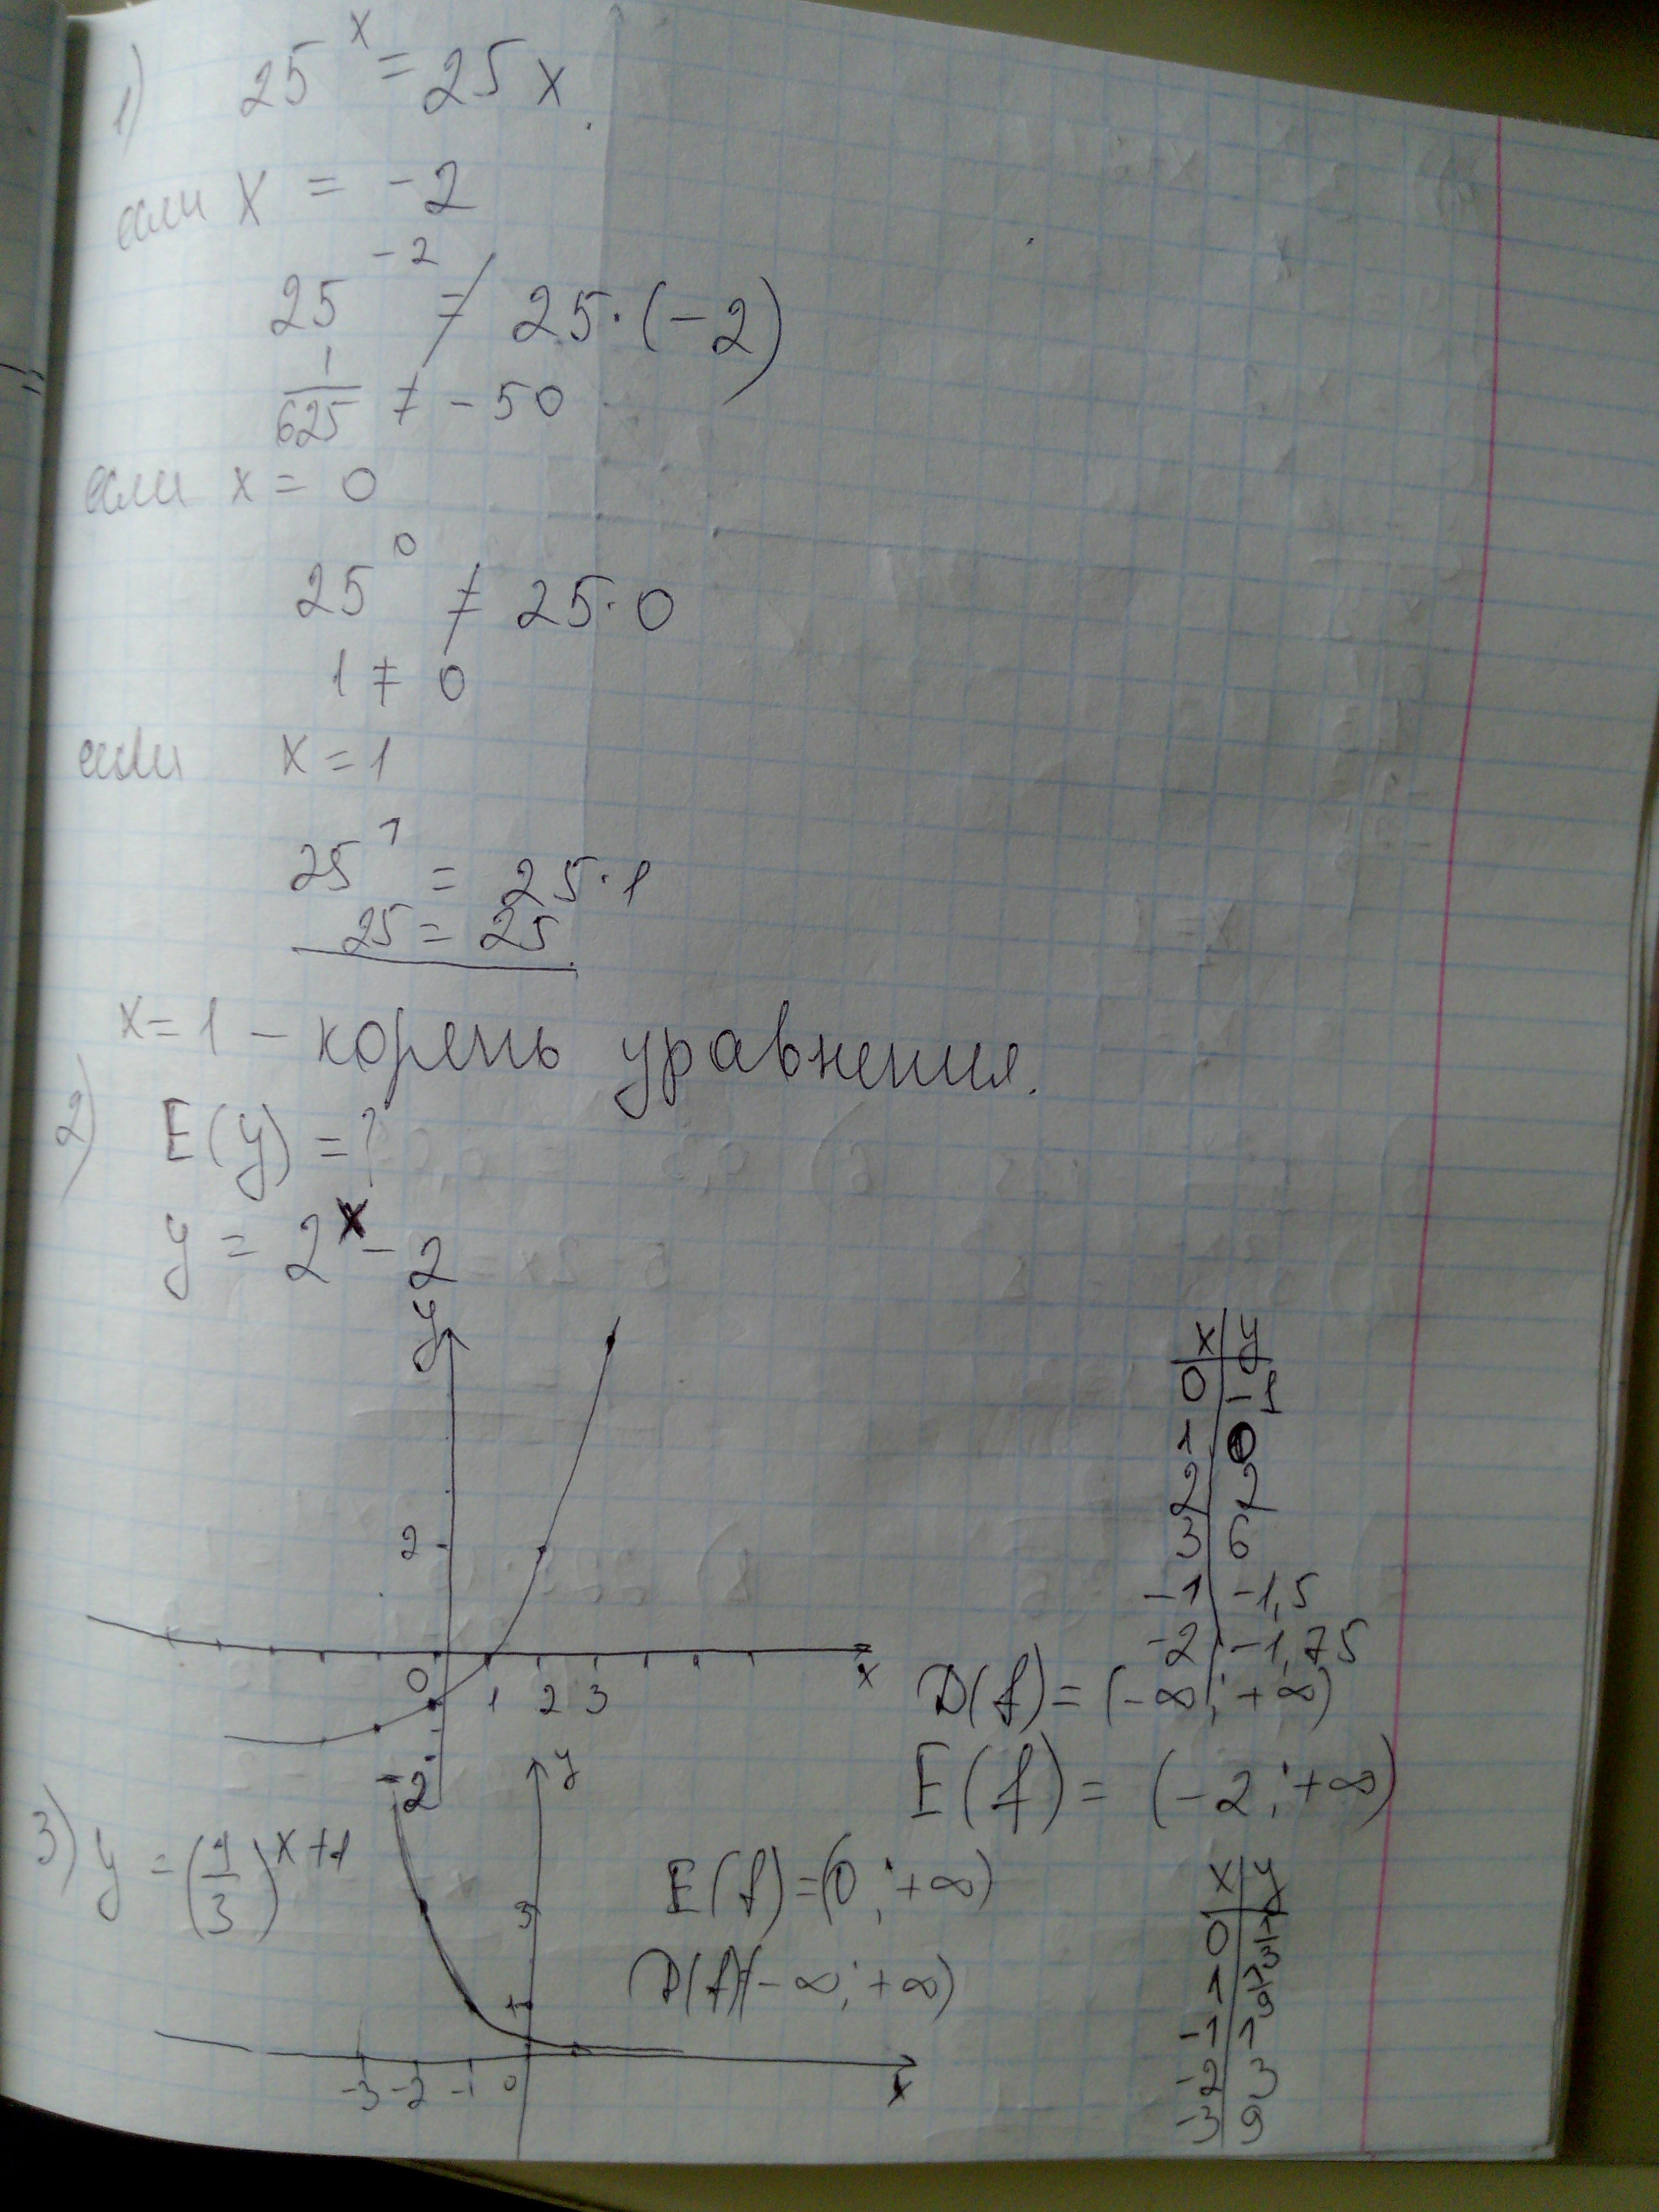 1) 25^x = 25x
если x = -2
25^-2 ≠ 25·(-2)
1/625 ≠ -50
если x = 0
25^0 ≠ 25·0
1 ≠ 0
если x = 1
25^1 = 25·1
25 = 25
x = 1 - корень уравнения.
2) E(y) = ?
y = 2^x - 2
y
2
0 1 2 3 x
-2
x y
0 -1
1 0
2 2
3 6
-1 -1,5
-2 -1,75
D(f) = (-∞; +∞)
E(f) = (-2; +∞)
3) y = (1/3)^x+1
y
3
1
-3 -2 -1 0 x
E(f) = (0; +∞)
D(f) = (-∞; +∞)
x y
0 1/3
1 1/9
-1 1
-2 3
-3 9